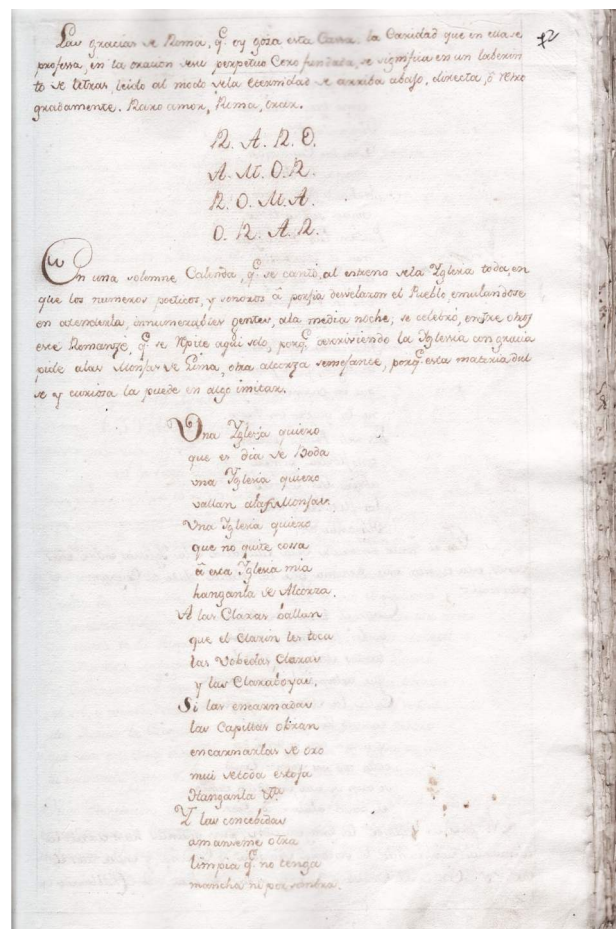 42
Las gracias de Roma, q.e oy goza esta Cassa. la Caridad que en ella se
professa, en la oracion de su perpetuo Coro fundada, se significa en un laberin
to de letras, leido al modo dela eternidad de arriba abajo, directa, ô retro
gradamente. Raro amor, Roma, orar.
R. A. R. O.
A. M. O. R.
R. O. M. A.
O. R. A. R.
En una solemne Calenda, q.e se cantó, al estreno dela Yglesia toda, en
que los numeros poeticos, y sonoros â porfia desvelaron el Pueblo emulandose
en atenderla, innumerables gentes, ala media noche; se celebró, entre otros
este Romanze, q.e se repite aqui solo, porq.e describiendo la Yglesia con gracia
pide alas Monjas de Lima, otra alcorza semejance, porq.e esta materia dul
se y curiosa la puede en algo imitar.
Una Yglesia quiero
que es dia de Boda
una Yglesia quiero
vallan alas Monjas.
Una Yglesia quiero
que no quite cossa
â esta Yglesia mia
hanganla de Alcorza.
A las Claras ballan
que el Clarin les toca
las Vobedas Claras
y las Claraboyas.
Si las encarnadas
las Capillas obran
encarnarlas de oro
mui detoda estofa
Hanganla &a
Y las concebidas
amanseme otra
limpia q.e no tenga
mancha ni por sombra.